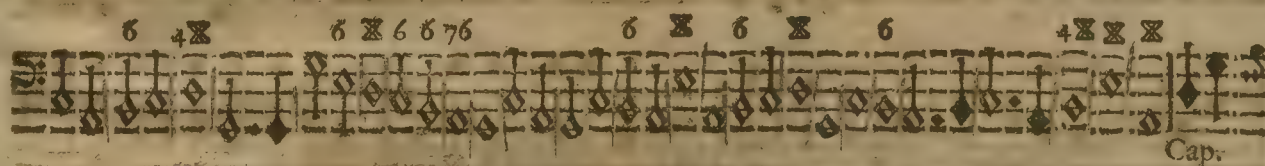 6 4 6 6 6 76 6 6 6 4
Cap.